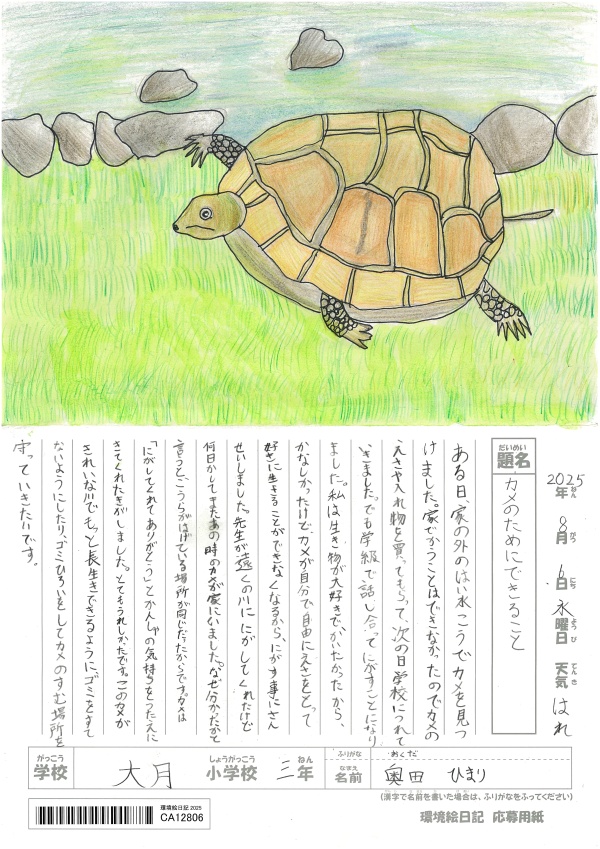 2025年 8月 6日 水曜日 天気 はれ
ねん がつ にち ようび てんき
だいめい
題名 カメのためにできること
ある日、家の外のはい水こうでカメを見つ
けました。家でかうことはできなかったのでカメの
えさや入れ物を買ってもらって、次の日学校につれて
いきました。でも学級で話し合ってにがすことになり
ました。私は生き物が大好きで、かいたかったから、
かなしかったけど、カメが自分で自由にえさをとって
好きに生きることができなくなるから、にがす事にさん
せいしました。先生が遠くの川ににがしてくれたけど
何日かしてまたあの時のカメが家にいました。なぜ分かったかて
言うとこうらがはげている場所が同じだったからです。カメは
「にがしてくれてありがとう」とかんしゃの気持ちをつたえに
きてくれたきがしました。とてもうれしかったです。このカメが
きれいな川でもっと長生きできるようにゴミをすて
ないようにしたり、ゴミひろいをしてカメのすむ場所を
守っていきたいです。
がっこう しょうがっこう ねん ふりがな おくだ
学校 大月 小学校 三年 なまえ 名前 奥田 ひまり
(漢字で名前を書いた場合は、ふりがなをふってください)
環境絵日記 2025
CA12806
環境絵日記 応募用紙